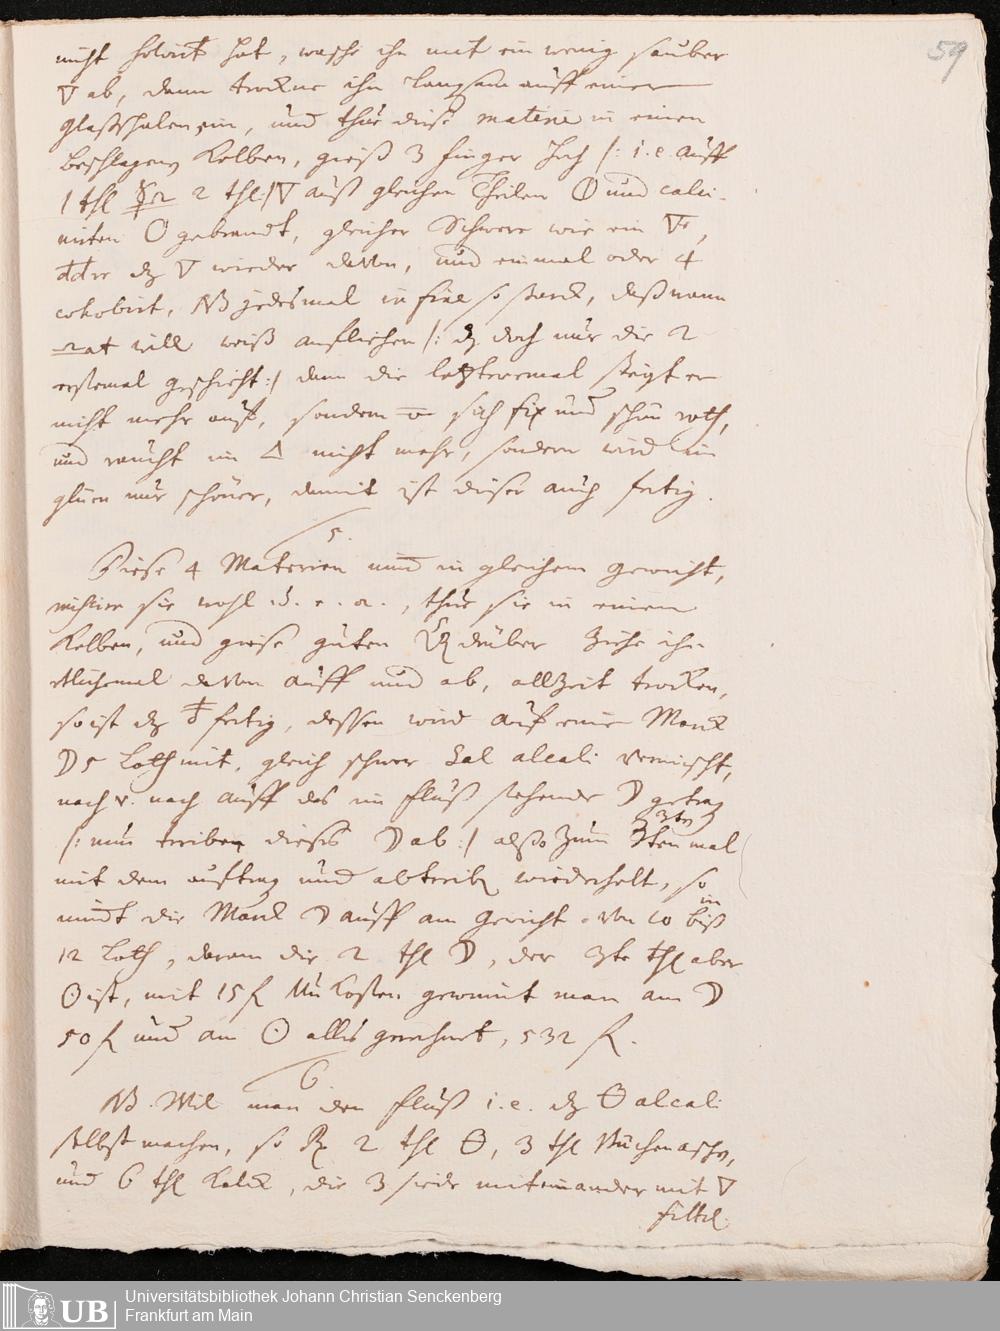 59
nicht solvirt hat, wasche ihn mit ein wenig sauber
🜄 ab, dann trockne ihn langsam auff einer
glaßschalen ein, und thue diese materie in einen
beschlagenen Kolben, gieß 3 finger hoch /: i. e. auff
1 thl 2 thl :/ 🜅 auß gleichen Theilen 🜕 und calci-
nirten gebrandt, gleicher Schwere wie ein
wieder davon, und einmal oder 4
cohobirt, NB jedesmal in fine so starck, daß wann
will weiß aufliehen /: dz doch nur die 2
erstemal geschicht :/ dann die letzteremal steigt er
nicht mehr auff, sondern sich fix und schön roth,
und raucht im 🜂 nicht mehr, sondern wird im
glüen nur schöner, damit ist dieser auch fertig.
5.
Diese 4 Materien nimb in gleichem gewicht,
mischire sie wohl d. e. a., thue sie in einen
Kolben, und giese guten drüber ziehe ihn
etlichemal davon auff und ab, allzeit trocken,
so ist dz fertig, dessen wird auf eine Marck
☽ 5 Loth mit, gleich schwer Sal alcali vermischt,
nach v. nach auff das im fluß stehende ☽ getragen
/: nun treiben dieses ☽ ab :/ also zum 3ten mal
3ten
mit dem auftragen und abtreiben wiederholt, so
nimbt die Marck ☽ auff am gewicht von 10 biß
in
12 Loth, davon die 2 thl ☽, der 3te thl aber
☉ ist, mit 15 f Unkosten gewinnt man am ☽
50 f und am ☉ alles gerechnet, 532 f.
6
NB. Wil man den fluß i. e. dz 🜔 alcali
selbst machen, so ℞ 2 thl 🜔, 3 thl Buchenaschen,
und 6 thl Kalck, die 3 siede miteinander mit 🜄
filtrl.
Universitätsbibliothek Johann Christian Senckenberg
Frankfurt am Main
UB